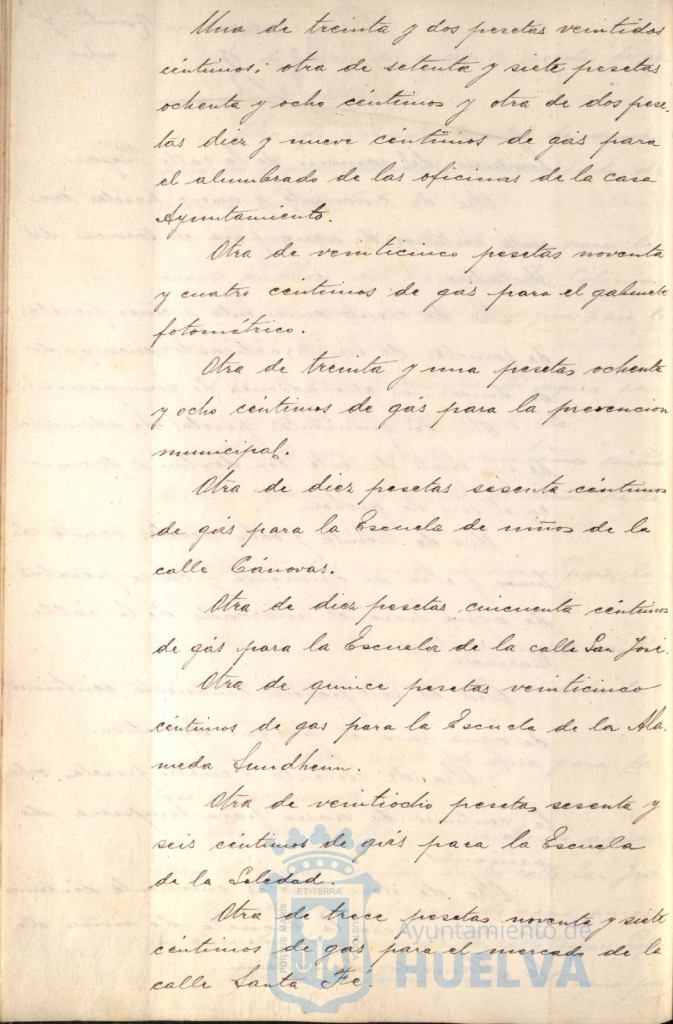 Una de treinta y dos pesetas veintidos
céntimos; otra de setenta y siete pesetas
ochenta y ocho céntimos y otra de dos pese-
tas diez y nueve céntimos de gás para
el alumbrado de las oficinas de la casa
Ayuntamiento.
Otra de veinticinco pesetas noventa
y cuatro céntimos de gás para el gabinete
fotométrico.
Otra de treinta y una pesetas ochenta
y ocho céntimos de gás para la prevencion
municipal.
Otra de diez pesetas sesenta céntimos
de gás para la Escuela de niños de la
calle Cánovas.
Otra de diez pesetas cincuenta céntimos
de gás para la Escuela de la calle San José.
Otra de quince pesetas veinticinco
céntimos de gas para la Escuela de la Ala-
meda Sundheim.
Otra de veintiocho pesetas sesenta y
seis céntimos de gás para la Escuela
de la Soledad.
Otra de trece pesetas noventa y siete
céntimos de gás para el mercado de la
calle Santa Fé.
Ayuntamiento de
HUELVA
PORTUS MARIS
ET TERRÆ
CUSTODIA